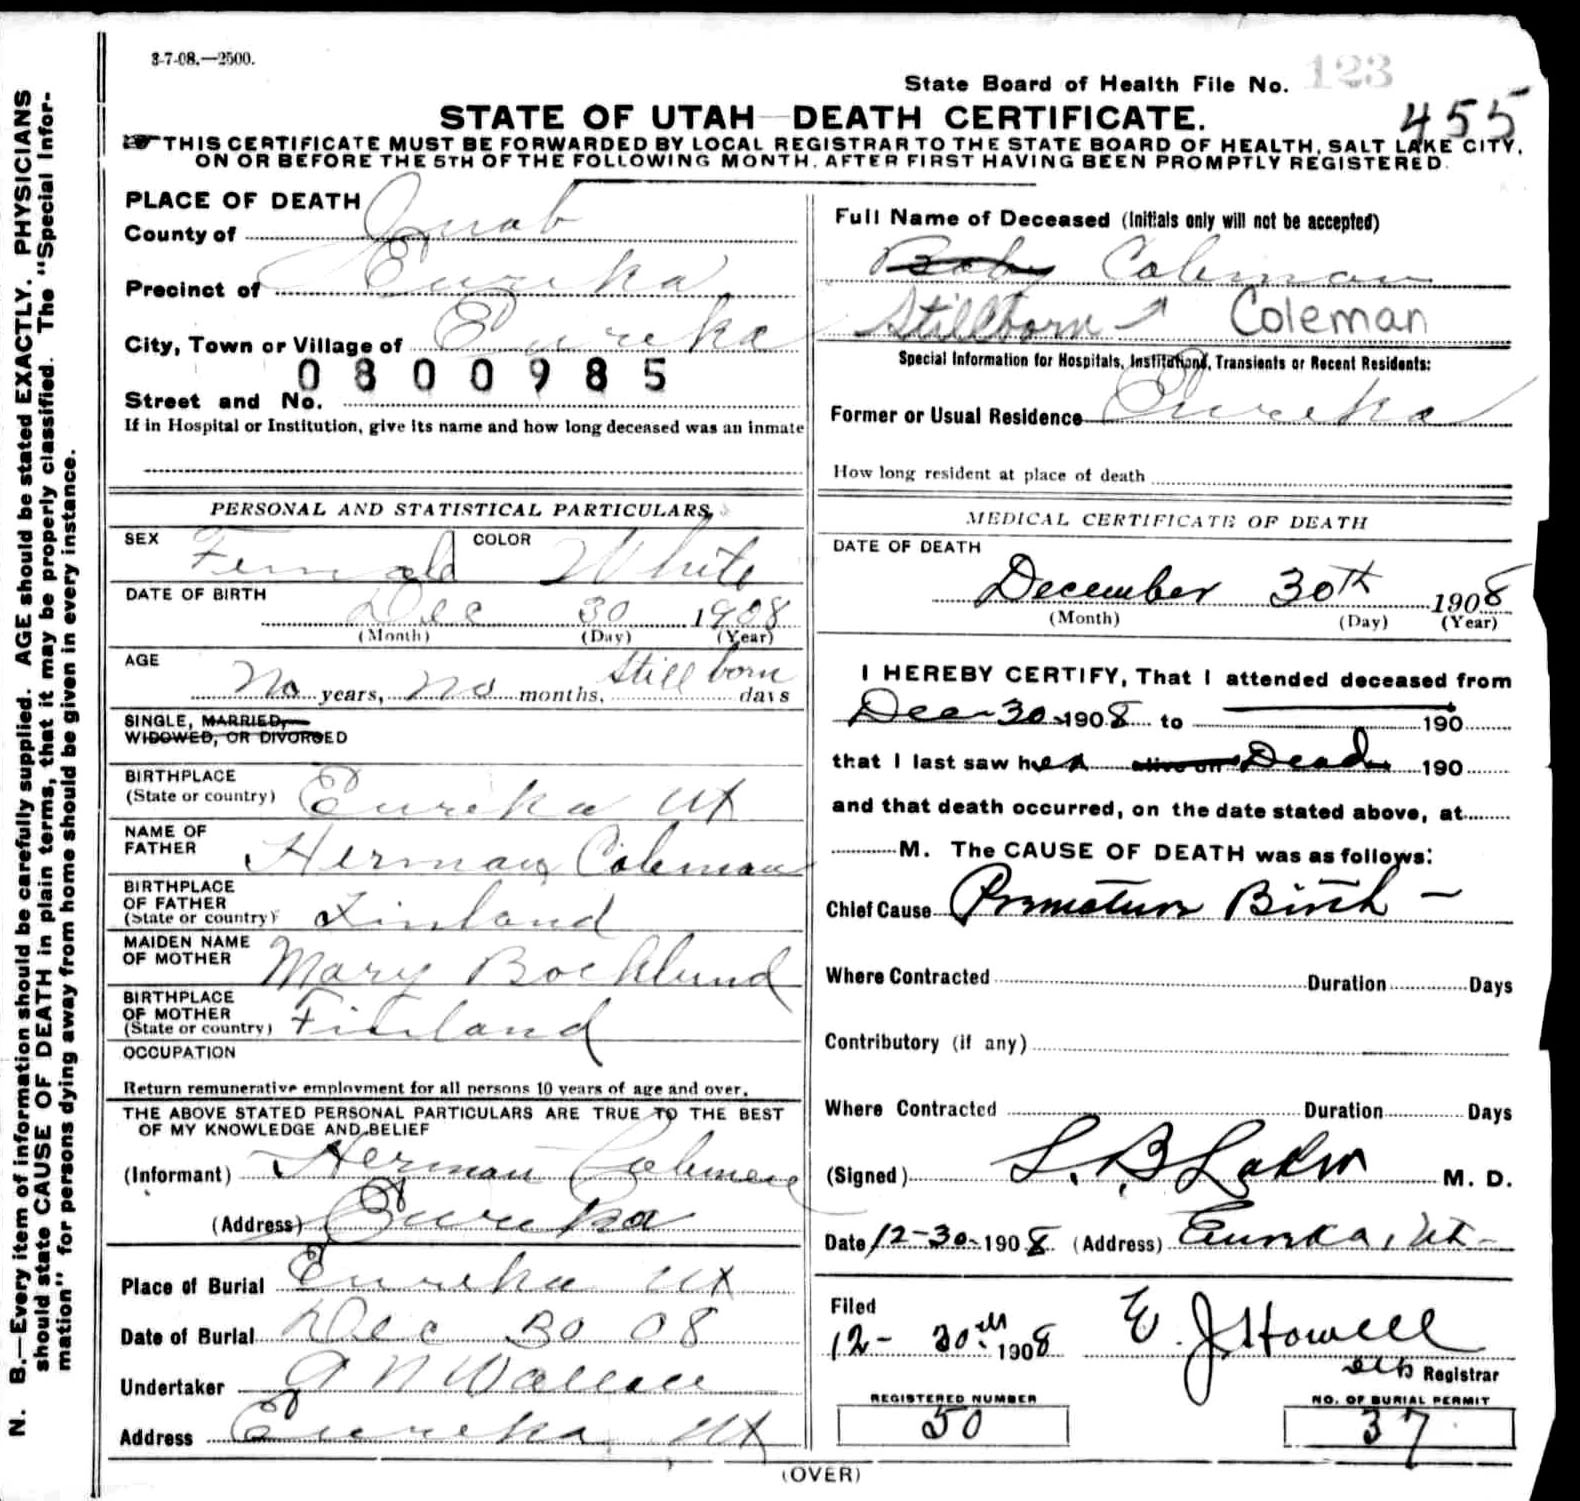 3-7-08.—2500.
State Board of Health File No. 123
455
STATE OF UTAH—DEATH CERTIFICATE.
THIS CERTIFICATE MUST BE FORWARDED BY LOCAL REGISTRAR TO THE STATE BOARD OF HEALTH, SALT LAKE CITY,
ON OR BEFORE THE 5TH OF THE FOLLOWING MONTH, AFTER FIRST HAVING BEEN PROMPTLY REGISTERED.
PLACE OF DEATH
County of Juab
Precinct of Eureka
City, Town or Village of Eureka
0800985
Street and No.
If in Hospital or Institution, give its name and how long deceased was an inmate
PERSONAL AND STATISTICAL PARTICULARS
SEX Female COLOR White
DATE OF BIRTH
Dec 30 1908
(Month) (Day) (Year)
AGE
No years, no months, Still born days
SINGLE, MARRIED,
WIDOWED, OR DIVORCED
BIRTHPLACE
(State or country) Eureka Ut
NAME OF
FATHER Herman Coleman
BIRTHPLACE
OF FATHER
(State or country) Finland
MAIDEN NAME
OF MOTHER Mary Bocklund
BIRTHPLACE
OF MOTHER
(State or country) Finland
OCCUPATION
Return remunerative employment for all persons 10 years of age and over.
THE ABOVE STATED PERSONAL PARTICULARS ARE TRUE TO THE BEST
OF MY KNOWLEDGE AND BELIEF
(Informant) Herman Colemen
(Address) Eureka
Place of Burial Eureka Ut
Date of Burial Dec 30 08
Undertaker A N Wallace
Address Eureka Ut
Full Name of Deceased (Initials only will not be accepted)
Baby Coleman
Stillborn Coleman
Special Information for Hospitals, Institutions, Transients or Recent Residents:
Former or Usual Residence Eureka
How long resident at place of death
MEDICAL CERTIFICATE OF DEATH
DATE OF DEATH
December 30th 1908
(Month) (Day) (Year)
I HEREBY CERTIFY, That I attended deceased from
Dec-30-1908 to 190
that I last saw her alive on Dead 190
and that death occurred, on the date stated above, at
M. The CAUSE OF DEATH was as follows:
Chief Cause Premature Birth –
Where Contracted Duration Days
Contributory (if any)
Where Contracted Duration Days
(Signed) M. D.
Date 12-30-1908 (Address) Eureka, Ut-
Filed
12- 30th 1908 E. J. Howell
Registrar
REGISTERED NUMBER
50
NO. OF BURIAL PERMIT
37
(OVER)
N. B.—Every item of information should be carefully supplied. AGE should be stated EXACTLY. PHYSICIANS
should state CAUSE OF DEATH in plain terms, that it may be properly classified. The "Special Infor-
mation" for persons dying away from home should be given in every instance.